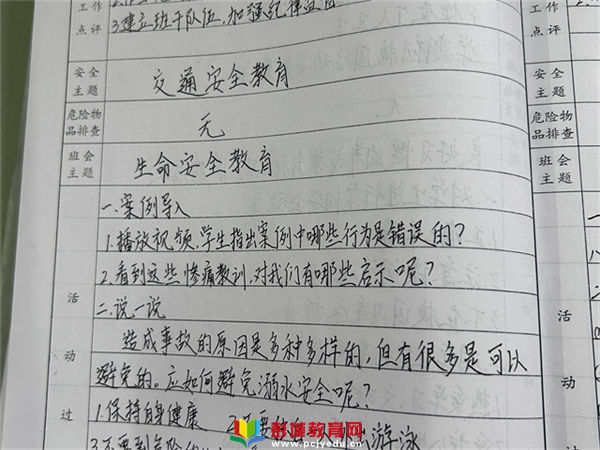 工作
点评
3.建立班干队伍,加强纪律监督
安全
主题
交通安全教育
危险物
品排查
无
班会
主题
生命安全教育
一.案例导入
1.播放视频,学生指出案例中哪些行为是错误的?
2.看到这些惨痛教训,对我们有哪些启示呢?
二.说一说
造成事故的原因是多种多样的,但有很多是可以
避免的。应如何避免溺水安全呢?
1.保持自身健康
游泳
3.不要到危险的
活
动
过
点评
安全
主题
危险物
品排查
班会
主题
活
动
彭德教育网
www.pcjydt.com